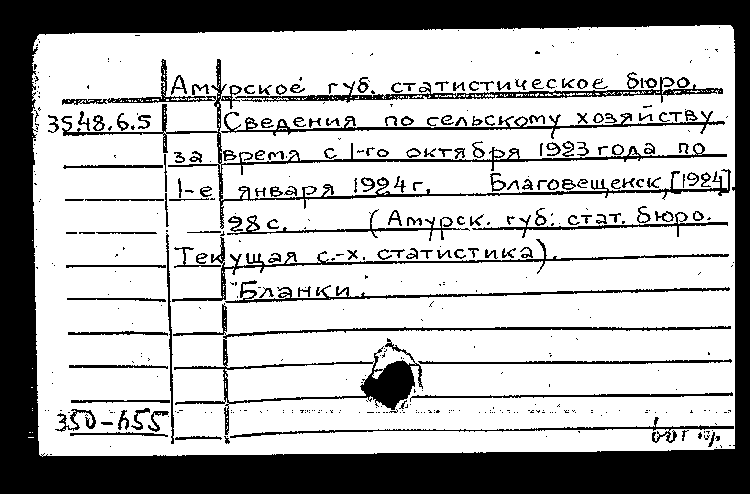 Амурское губ. статистическое бюро.
3548.6.5 Сведения по сельскому хозяйству
за время с 1-го октября 1923 года по
1-е января 1924 г. Благовещенск, [1924].
28 с. (Амурск. губ. стат. бюро.
Текущая с.-х. статистика).
Бланки.
350-655